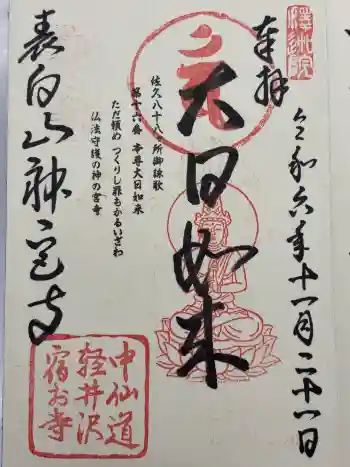 奉拝
令和六年十一月二十一日
大日如来
佐久八十八ヶ所御詠歌
第十六番 本尊大日如来
ただ頼め つくりし罪もかるいざわ
仏法守護の神の宮寺
表白山神宮寺
中仙道
軽井沢
宿お寺